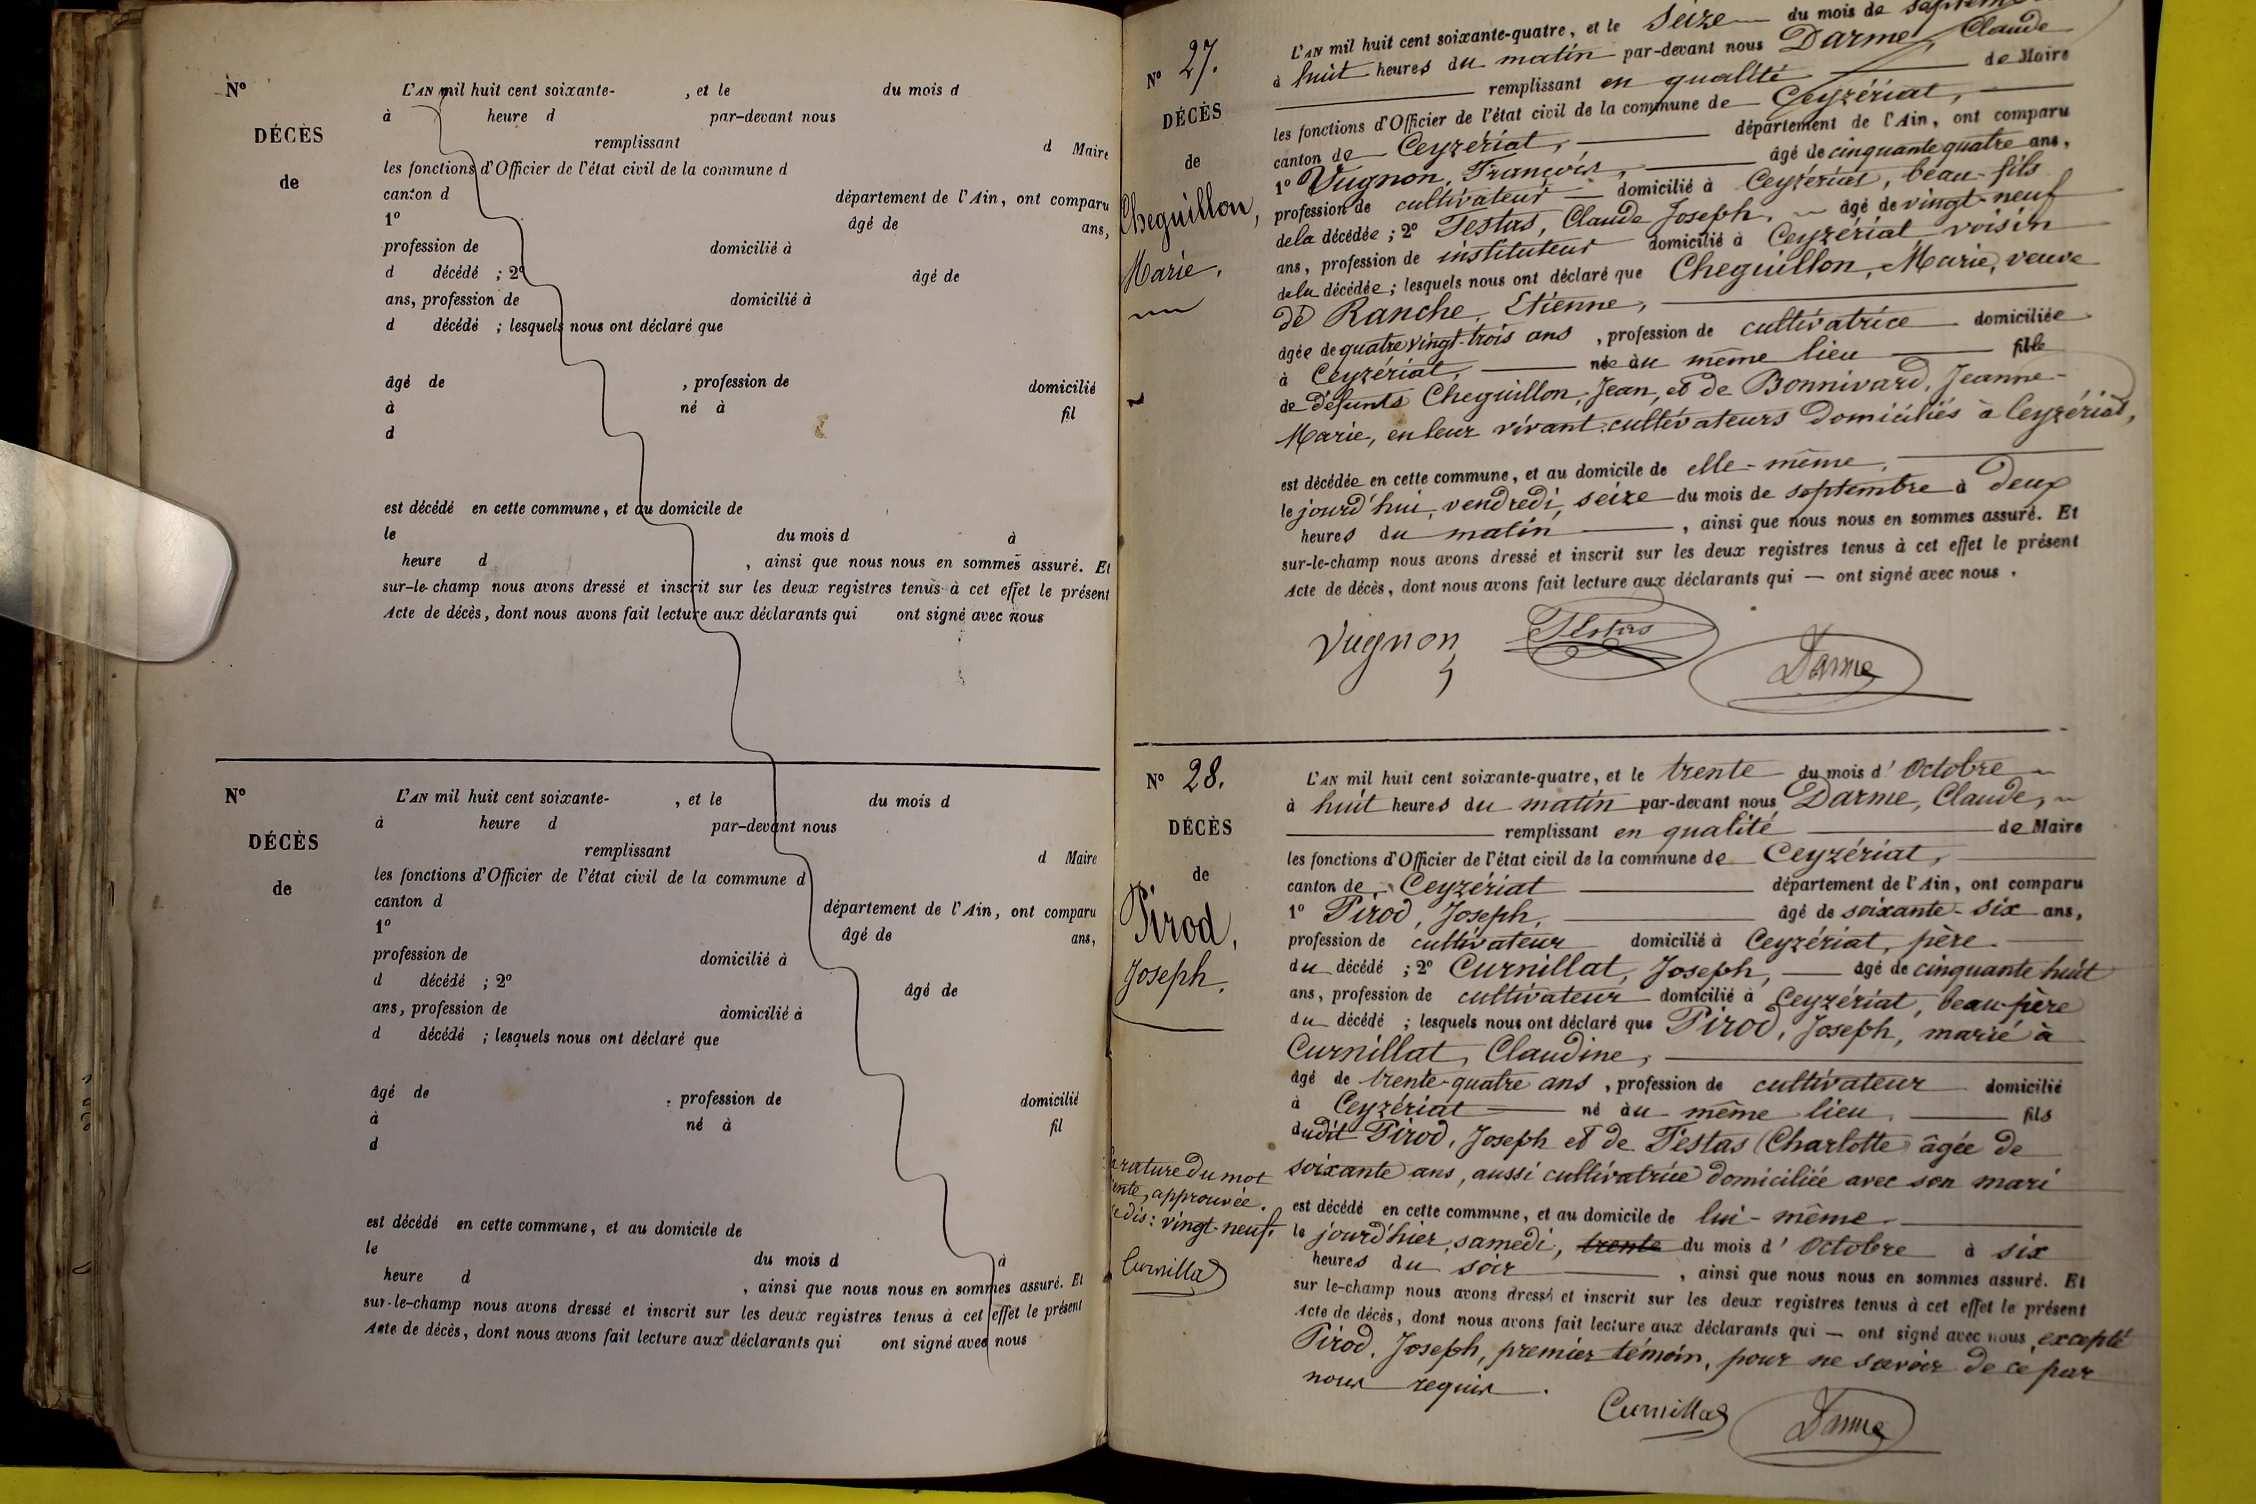 N°
L'AN mil huit cent soixante- , et le du mois d
à heure d par-devant nous
DÉCÈS
remplissant d Maire
les fonctions d'Officier de l'état civil de la commune d
de
canton d département de l'Ain, ont comparu
1° âgé de ans,
profession de domicilié à
d décédé ; 2° âgé de
ans, profession de domicilié à
d décédé ; lesquels nous ont déclaré que
âgé de , profession de domicilié
à né à fil
d
est décédé en cette commune, et au domicile de
le du mois d à
heure d , ainsi que nous nous en sommes assuré. Et
sur-le-champ nous avons dressé et inscrit sur les deux registres tenus à cet effet le présent
Acte de décès, dont nous avons fait lecture aux déclarants qui ont signé avec nous
N°
L'AN mil huit cent soixante- , et le du mois d
à heure d par-devant nous
DÉCÈS
remplissant d Maire
les fonctions d'Officier de l'état civil de la commune d
de
canton d département de l'Ain, ont comparu
1° âgé de ans,
profession de domicilié à
d décédé ; 2° âgé de
ans, profession de domicilié à
d décédé ; lesquels nous ont déclaré que
âgé de , profession de domicilié
à né à fil
d
est décédé en cette commune, et au domicile de
le du mois d à
heure d , ainsi que nous nous en sommes assuré. Et
sur-le-champ nous avons dressé et inscrit sur les deux registres tenus à cet effet le présent
Acte de décès, dont nous avons fait lecture aux déclarants qui ont signé avec nous
N° 27.
DÉCÈS
de
Cheguillon,
Marie.
L'AN mil huit cent soixante-quatre, et le seize du mois de septembre
à huit heures du matin par-devant nous Darme, Claude
remplissant en qualité de Maire
les fonctions d'Officier de l'état civil de la commune de Ceyzériat,
canton de Ceyzériat, département de l'Ain, ont comparu
1° Vugnon, François, âgé de cinquante quatre ans,
profession de cultivateur domicilié à Ceyzériat, beau-fils
de la décédée ; 2° Testas, Claude Joseph, âgé de vingt-neuf
ans, profession de instituteur domicilié à Ceyzériat voisin
de la décédée ; lesquels nous ont déclaré que Cheguillon, Marie, veuve
de Ranche, Etienne,
âgée de quatre vingt-trois ans , profession de cultivatrice domiciliée
à Ceyzériat, née au même lieu fille
de défunts Cheguillon, Jean, et de Bonnivard, Jeanne-
Marie, en leur vivant cultivateurs domiciliés à Ceyzériat,
est décédée en cette commune, et au domicile de elle-même,
le jourd'hui, vendredi, seize du mois de septembre à deux
heures du matin , ainsi que nous nous en sommes assuré. Et
sur-le-champ nous avons dressé et inscrit sur les deux registres tenus à cet effet le présent
Acte de décès, dont nous avons fait lecture aux déclarants qui — ont signé avec nous .
Vugnon Testas
Darme
N° 28.
DÉCÈS
de
Pirod,
Joseph.
L'AN mil huit cent soixante-quatre, et le trente du mois d'Octobre
à huit heures du matin par-devant nous Darme, Claude,
remplissant en qualité de Maire
les fonctions d'Officier de l'état civil de la commune de Ceyzériat,
canton de Ceyzériat département de l'Ain, ont comparu
1° Pirod, Joseph, âgé de soixante-six ans,
profession de cultivateur domicilié à Ceyzériat, père
du décédé ; 2° Curnillat, Joseph, âgé de cinquante huit
ans, profession de cultivateur domicilié à Ceyzériat, beau-père
du décédé ; lesquels nous ont déclaré que Pirod, Joseph, marié à
Curnillat, Claudine,
âgé de trente-quatre ans , profession de cultivateur domicilié
à Ceyzériat né au même lieu, fils
dudit Pirod, Joseph et de Testas (Charlotte) âgée de
soixante ans, aussi cultivatrice domiciliée avec son mari
est décédé en cette commune, et au domicile de lui-même.
le jourd'hier, samedi, trente du mois d'Octobre à six
heures du soir , ainsi que nous nous en sommes assuré. Et
sur le-champ nous avons dressé et inscrit sur les deux registres tenus à cet effet le présent
Acte de décès, dont nous avons fait lecture aux déclarants qui — ont signé avec nous, excepté
Pirod, Joseph, premier témoin, pour ne savoir de ce par
nous requis.
rature du mot
approuvée.
dis : vingt-neuf.
Curnillat
Curnillat Darme